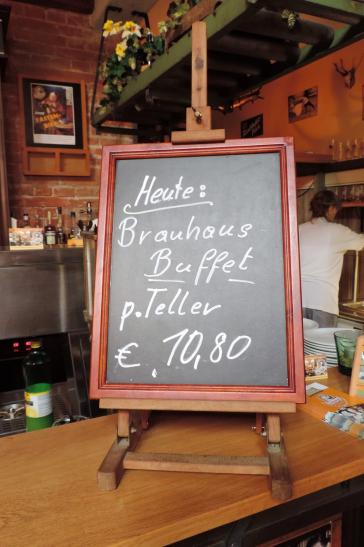 Heute:
Brauhaus
Buffet
p. Teller
€ 10,80